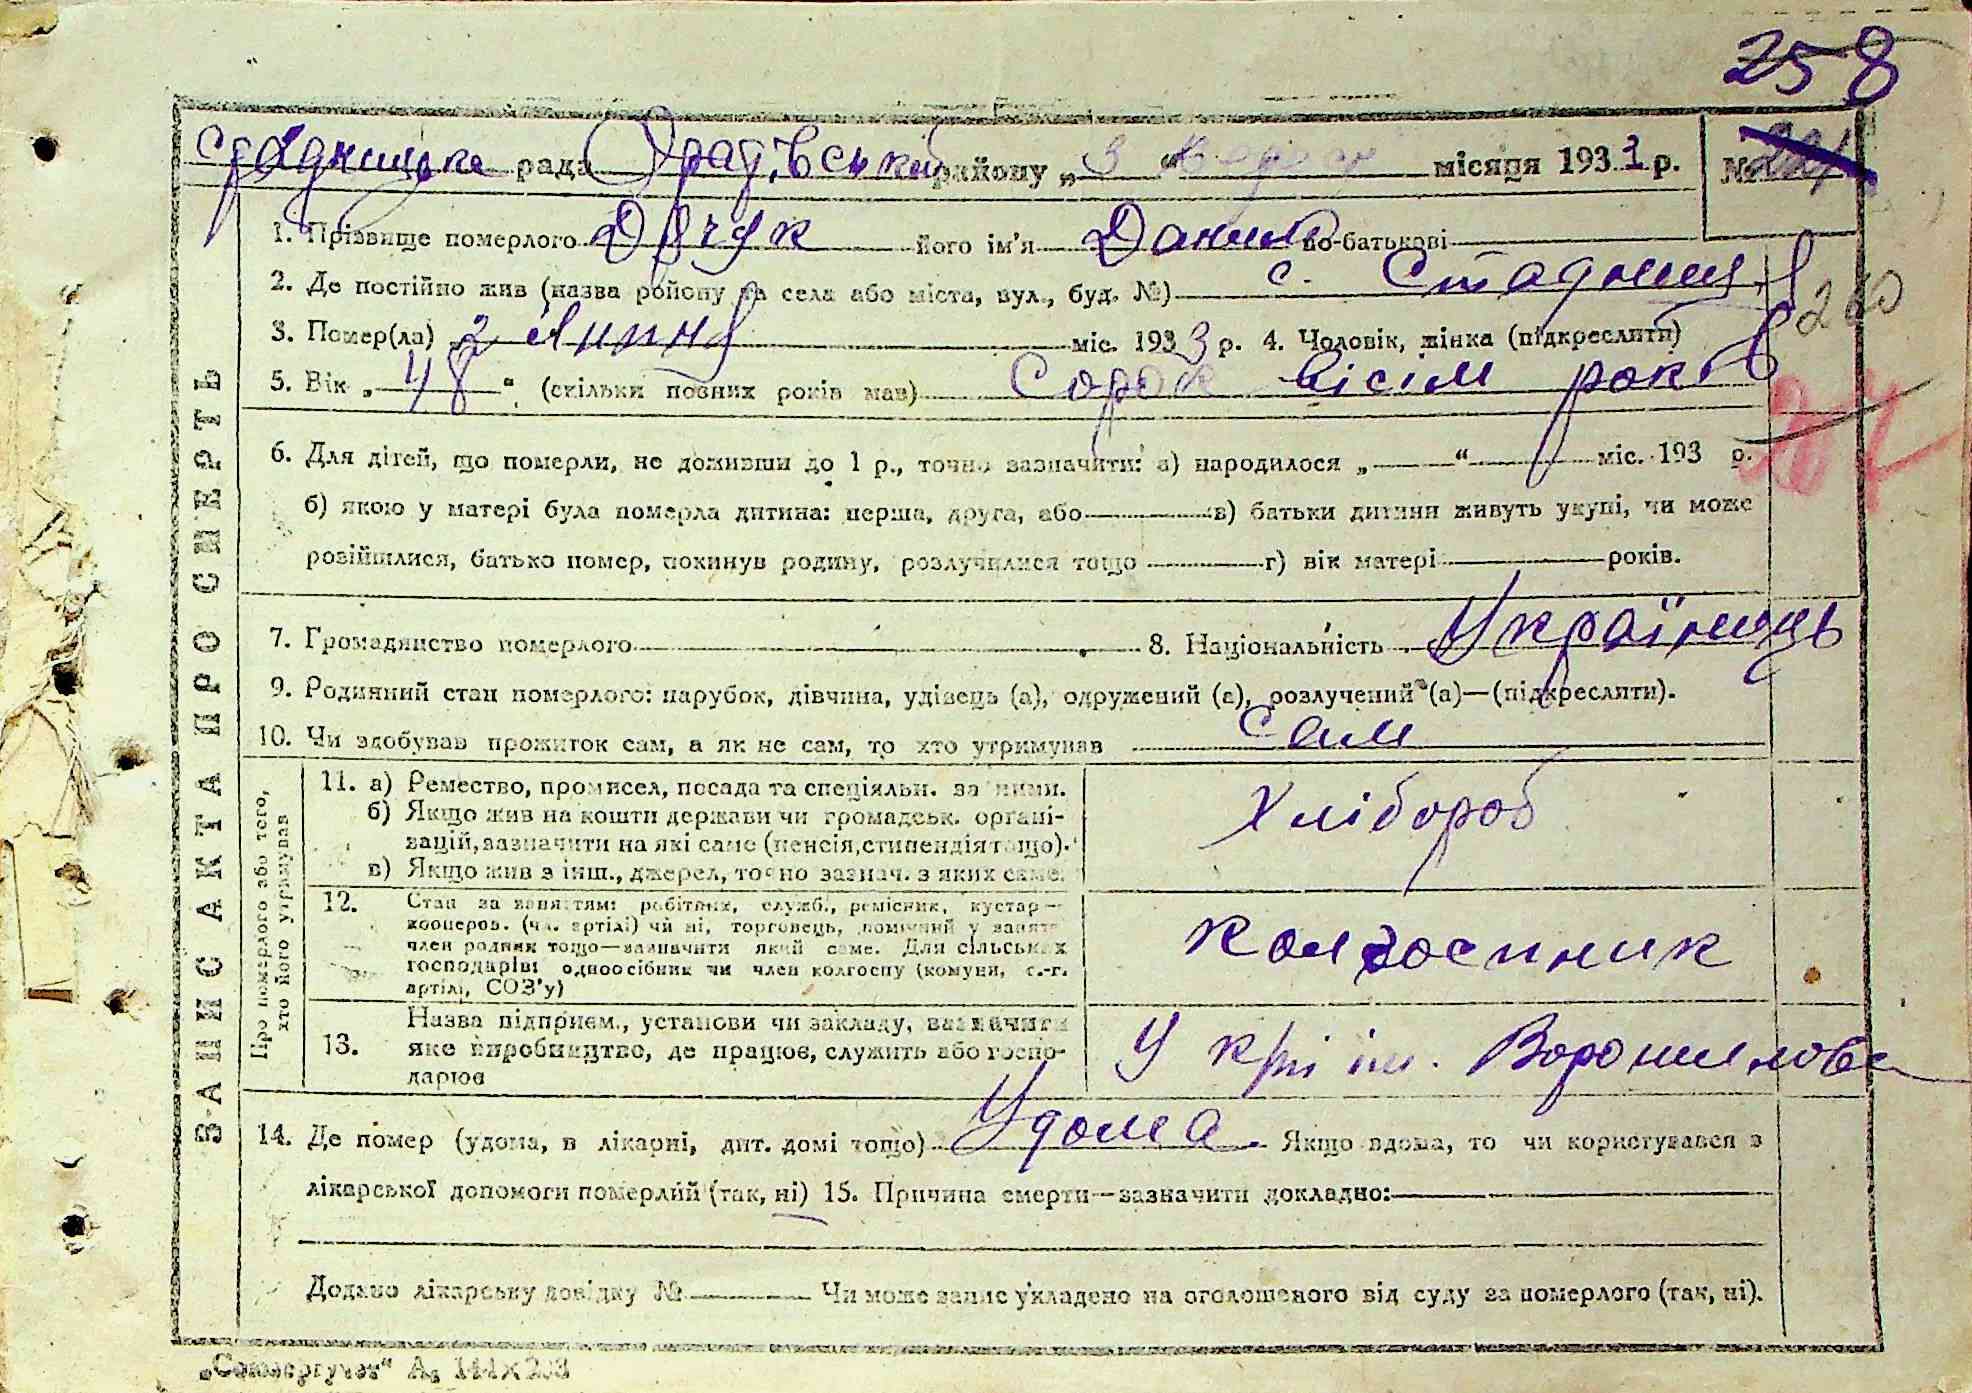 258
рада Оратівський району „ 3 “ місяця 1933 р. №
1. Прізвище померлого його ім'я Данило по-батькові
2. Де постійно жив (назва району та села або міста, вул., буд. №) с. Стадниця
260
3. Помер(ла) „2 Липня міс. 1933 р. 4. Чоловік, жінка (підкреслити)
5. Вік „ 48 “ (скільки повних років мав) Сорок вісім років
6. Для дітей, що померли, не доживши до 1 р., точно зазначити: а) народилося „ “ міс. 193 р.
б) якою у матері була померла дитина: перша, друга, або в) батьки дитини живуть укупі, чи може
розійшлися, батько помер, покинув родину, розлучилися тощо г) вік матері років.
7. Громадянство померлого 8. Національність Українець
9. Родинний стан померлого: парубок, дівчина, удівець (а), одружений (а), розлучений (а)—(підкреслити).
10. Чи здобував прожиток сам, а як не сам, то хто утримував сам
ЗАПИС АКТА ПРО СМЕРТЬ
Про померлого або того,
хто його утримував
11. а) Ремество, промисел, посада та спеціяльн. за ними.
б) Якщо жив на кошти держави чи громадськ. органі-
зацій, зазначити на які саме (пенсія, стипендія тощо).
в) Якщо жив з інш., джерел, точно зазнач. з яких саме.
Хлібороб
12. Стан за заняттям: робітник, служб., ремісник, кустар—
кооперов. (чл. артілі) чи ні, торговець, помічний у занятт.
член родини тощо—зазначити який саме. Для сільських
господарів: одноосібник чи член колгоспу (комуни, с.-г.
артілі, СОЗ'у)
колгоспник
13. Назва підприєм., установи чи закладу, зазначити
яке виробництво, де працює, служить або госпо-
дарює
У ім. Ворошилова
14. Де помер (удома, в лікарні, дит. домі тощо) Удома. Якщо вдома, то чи користувався з
лікарської допомоги померлий (так, ні) 15. Причина смерти—зазначити докладно:
Додано лікарську довідку № Чи може запис укладено на оголошеного від суду за померлого (так, ні).
„Союзоргучет“